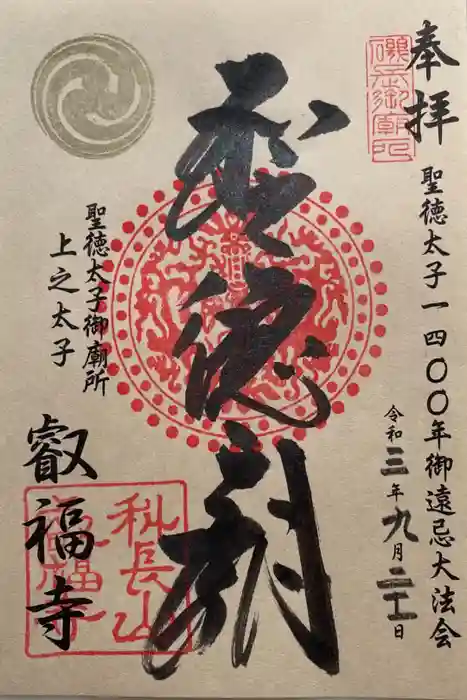 奉拝
聖徳太子一四〇〇年御遠忌大法会
令和三年九月二十一日
磯長御廟印
聖徳廟
聖徳太子御廟所
上之太子
叡福寺
科長山